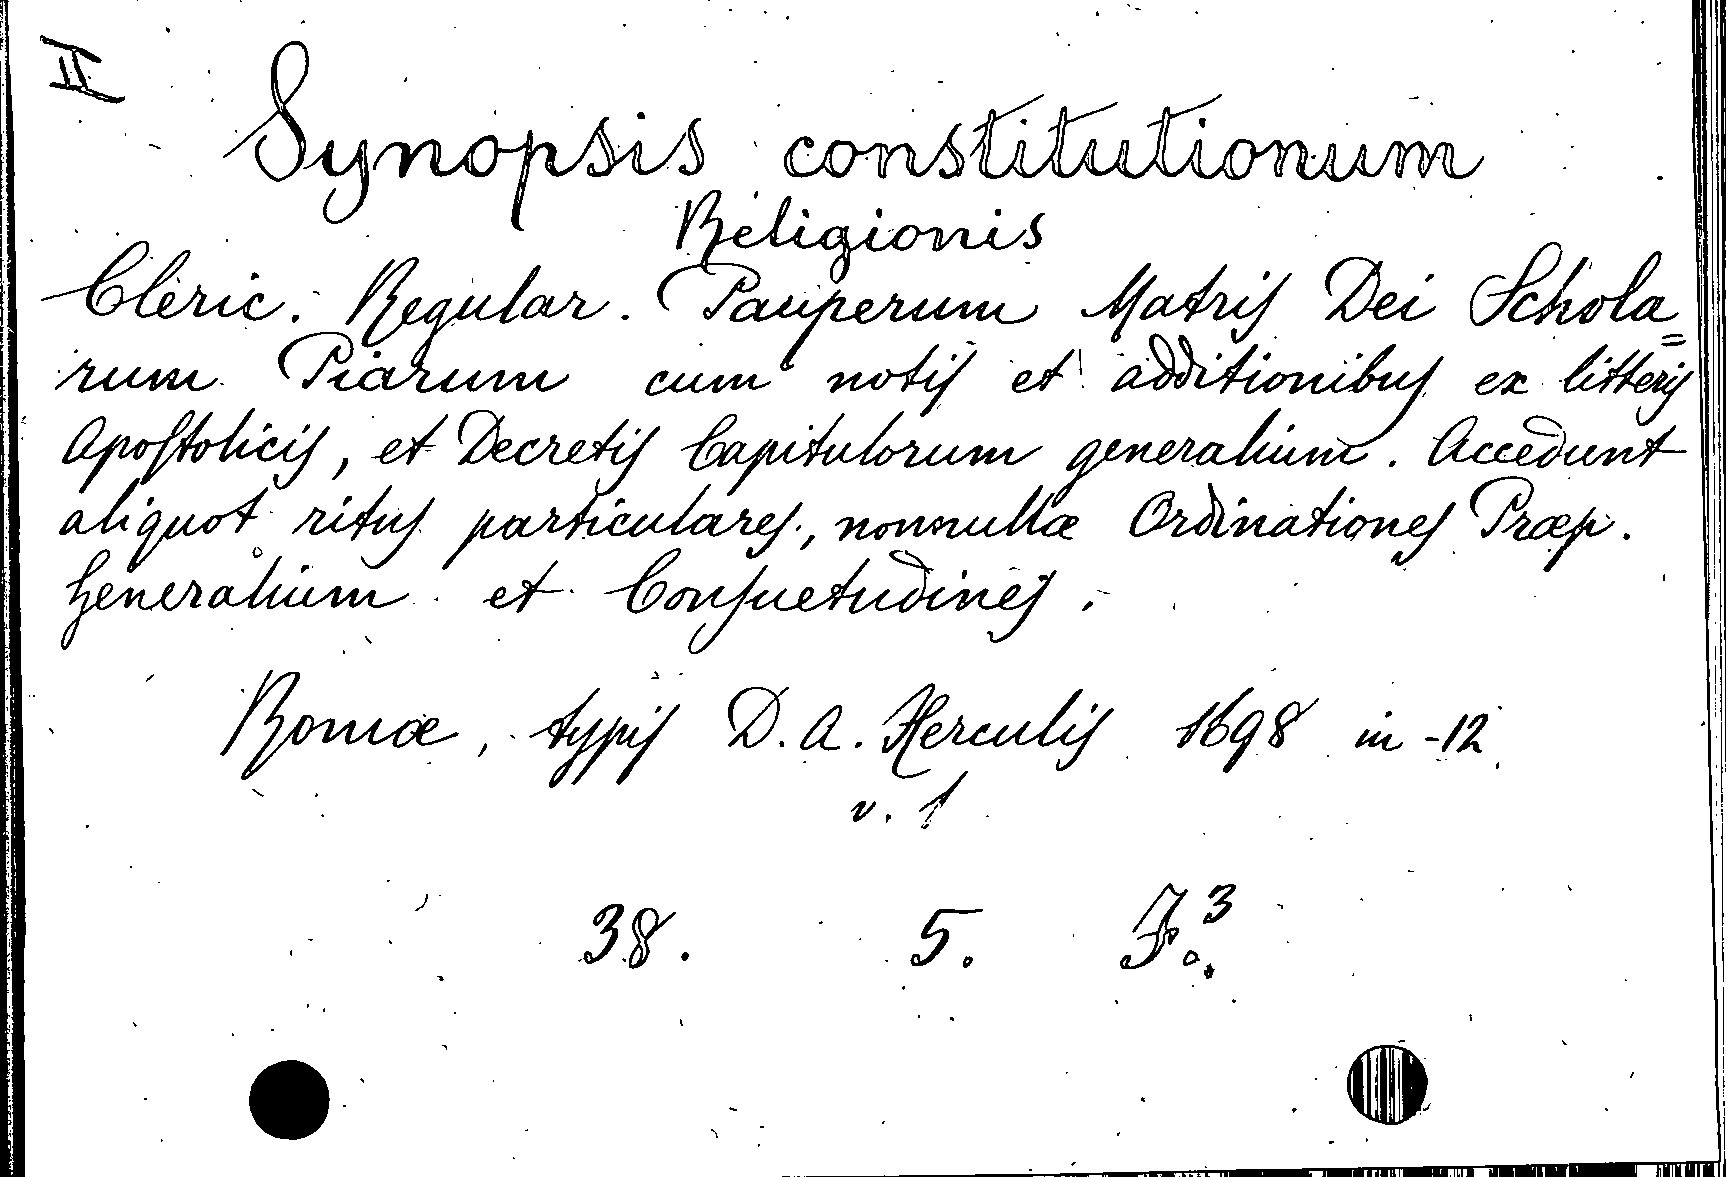 II
Synopsis constitutionum
Religionis
Cleric. Regular. Pauperum Matris Dei Schola=
rum Piarum cum notis et additionibus ex litteris
Apostolicis, et Decretis Capitulorum generalium. Accedunt
aliquot ritus particulares, nonnullæ Ordinationes Præp.
Generalium et Consuetudines.
Romæ, typis D. A. Herculis 1698 in-12
v. 1
38. 5.